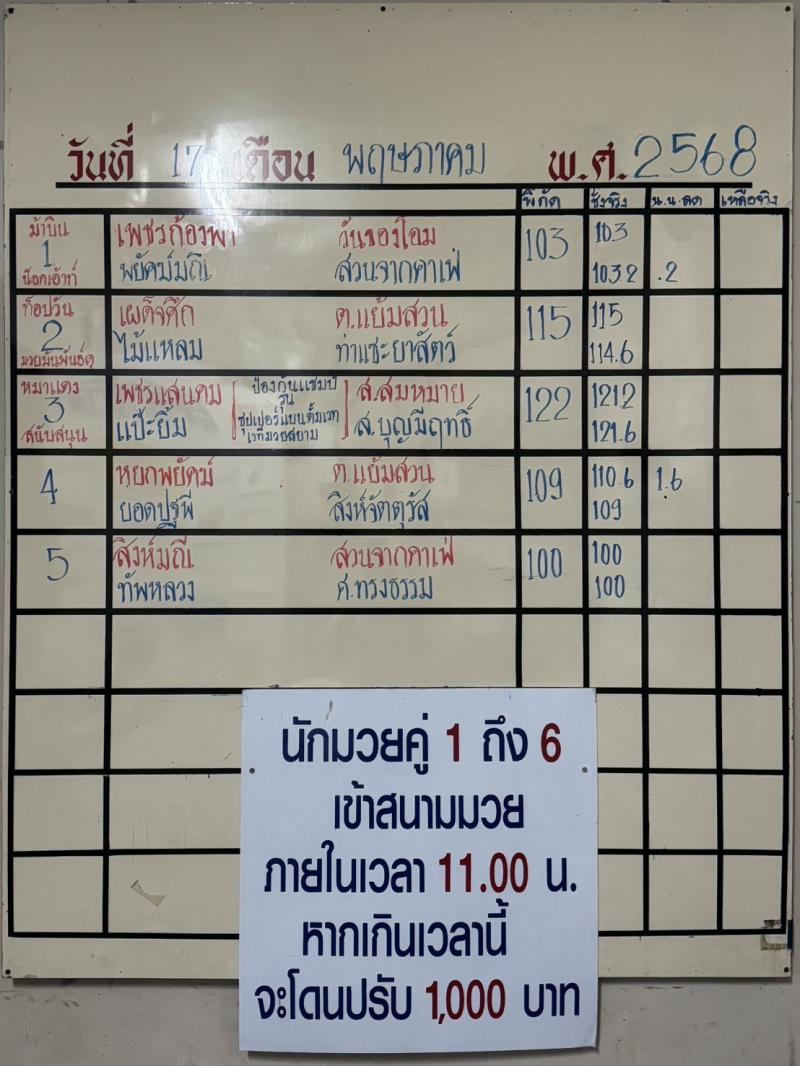 วันที่ 17 เดือน พฤษภาคม พ.ศ. 2568
พิกัด ชั่งจริง น.น.ลด เหลือจริง
ม้าบิน
1
น็อคเอ้าท์
เพชรก้องฟ้า วันของโอม 103 103
พยัคฆ์มณี สวนจากคาเฟ่ 103.2 .2
ท็อปวัน
2
มวยมันพันธ์ดุ
เผด็จศึก ต.แย้มสวน 115 115
ไม้แหลม ท่าแซะยาสัตว์ 114.6
หมาแดง
3
สนับสนุน
เพชรแสนคม ส.สมหมาย 122 121.2
แป๊ะยิ้ม ส.บุญมีฤทธิ์ 121.6
ป้องกันแชมป์
รุ่น
ซุปเปอร์แบนตั้มเวท
เวทีมวยสยาม
4
หยกพยัคฆ์ ต.แย้มสวน 109 110.6 1.6
ยอดปฐพี สิงห์จัตตุรัส 109
5
สิงห์มณี สวนจากคาเฟ่ 100 100
ทัพหลวง ศ.ทรงธรรม 100
นักมวยคู่ 1 ถึง 6
เข้าสนามมวย
ภายในเวลา 11.00 น.
หากเกินเวลานี้
จะโดนปรับ 1,000 บาท